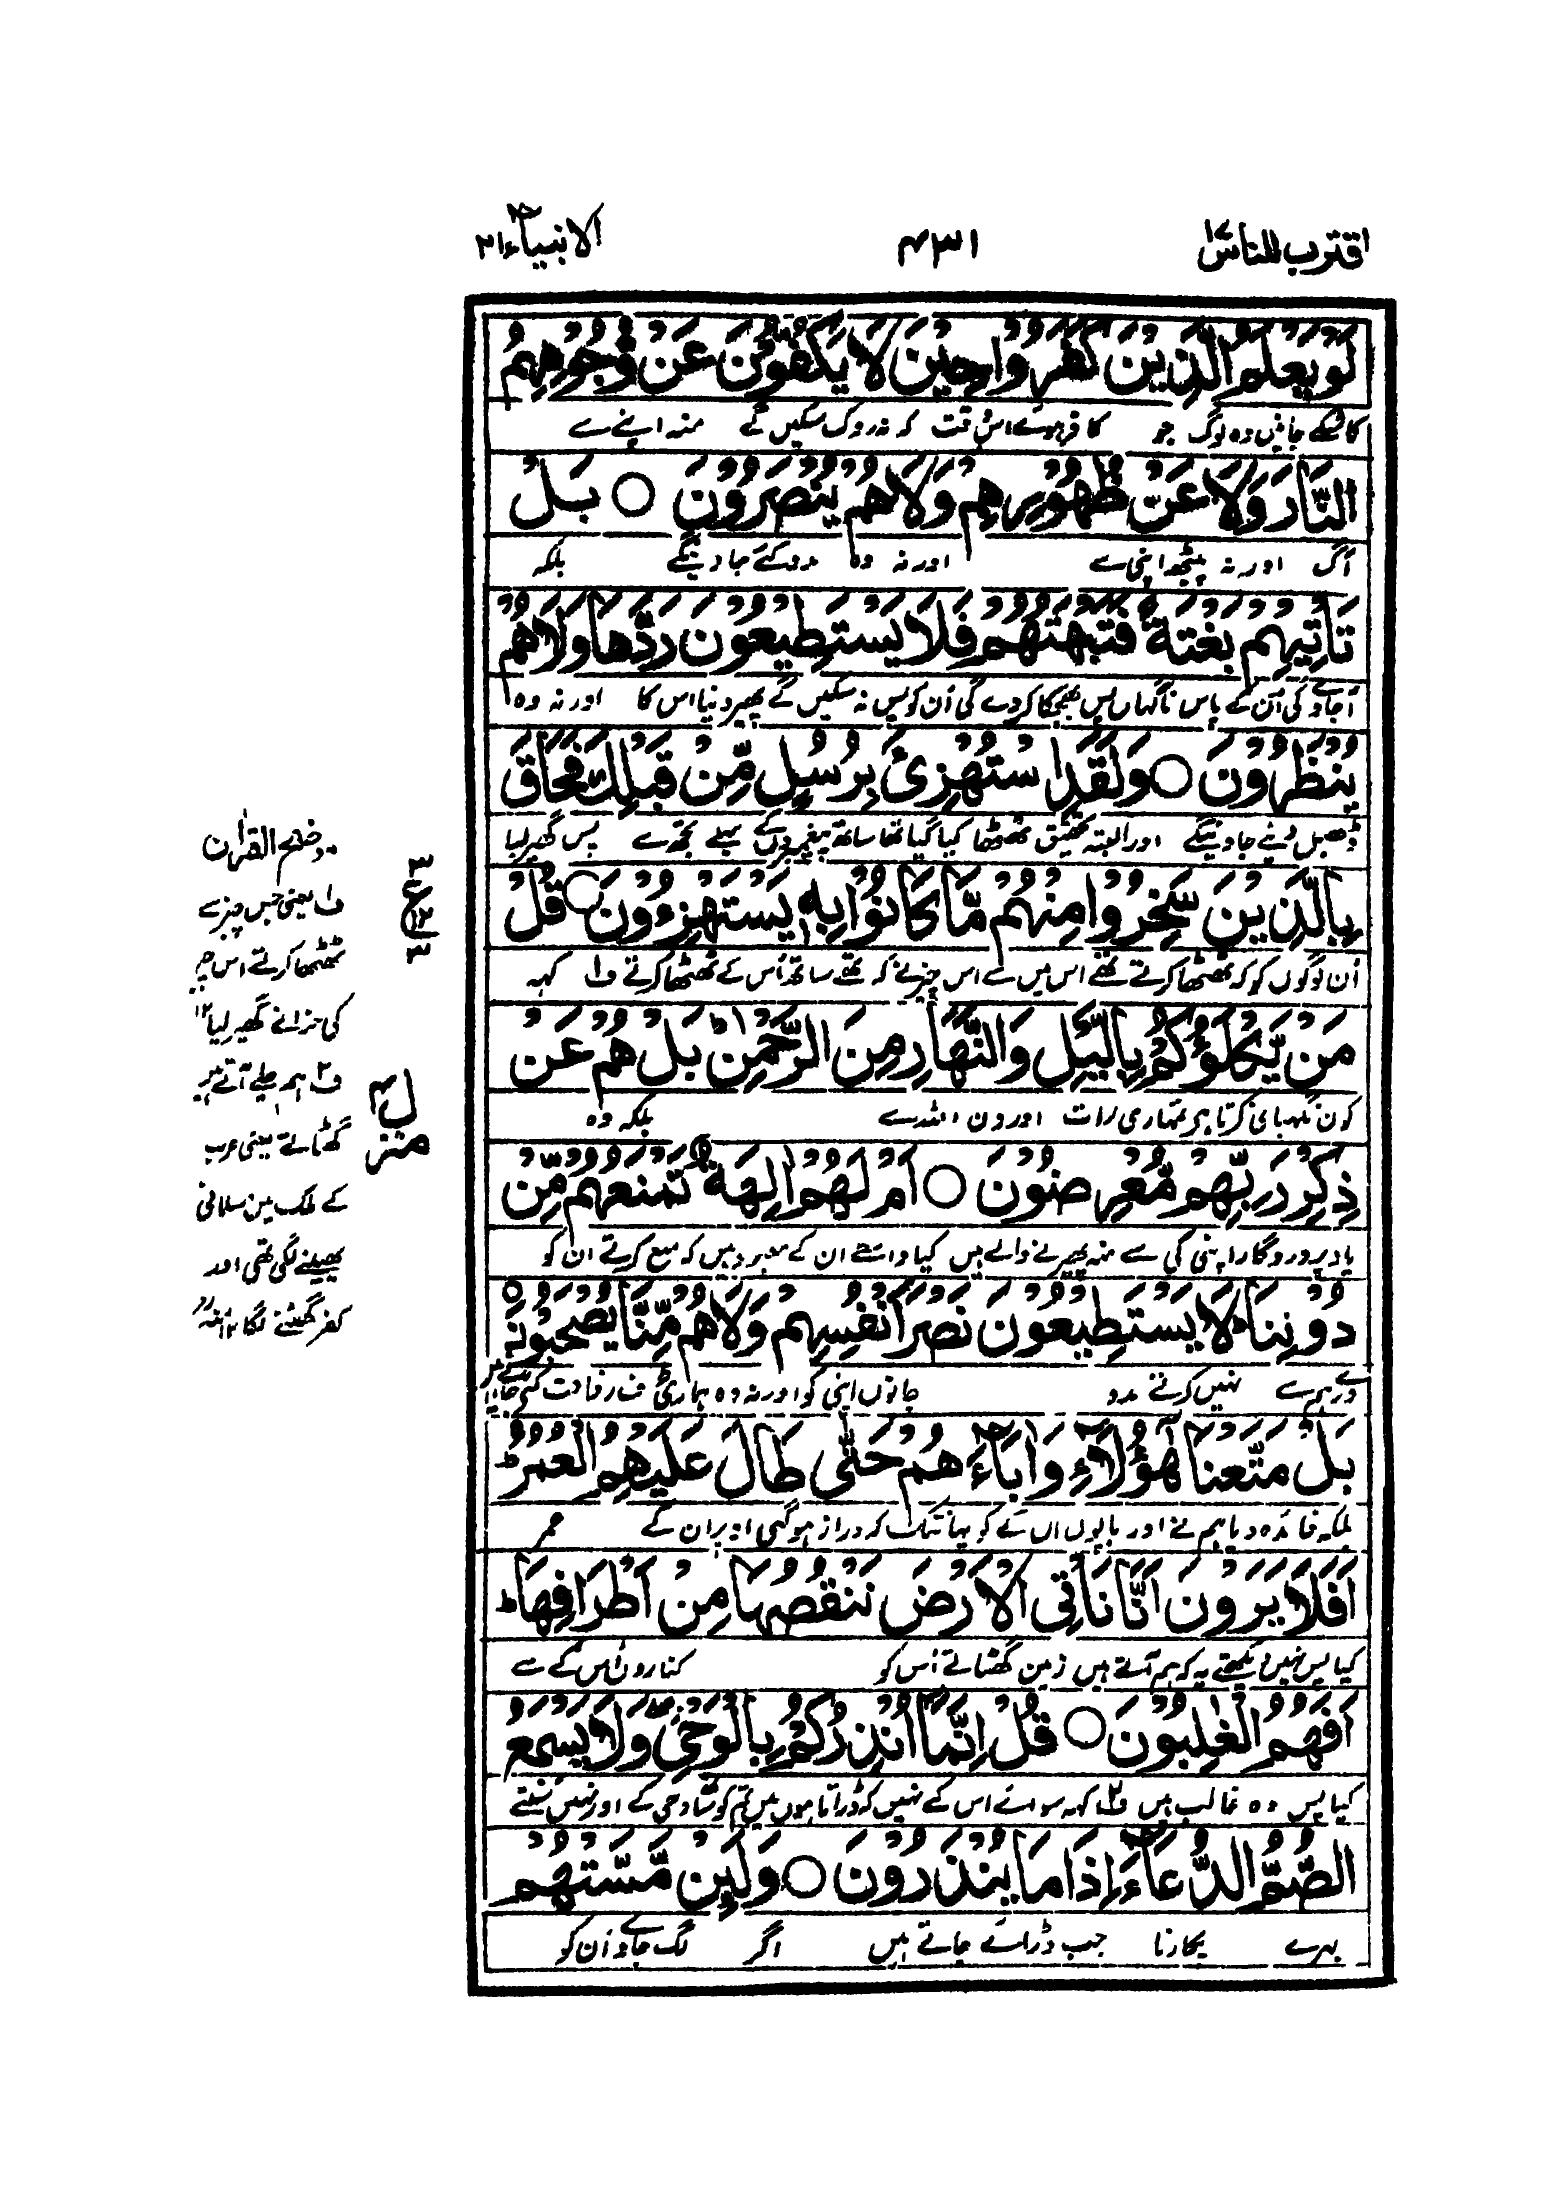 اقترب للناس ۱۷
۴۳۱
الانبیآء ۲۱
لَوْ يَعْلَمُ الَّذِيْنَ كَفَرُوْا حِيْنَ لَا يَكُفُّوْنَ عَنْ وُّجُوْهِهِمُ
کافر ہوئے اس وقت کہ نہ روک سکیں گے منہ اپنے سے
النَّارَ وَلَا عَنْ ظُهُوْرِهِمْ وَلَا هُمْ يُنْصَرُوْنَ ○ بَلْ
آگ اور نہ پیٹھ اپنی سے اور نہ وہ مدد کئے جاوینگے بلکہ
تَأْتِيْهِمْ بَغْتَةً فَتَبْهَتُهُمْ فَلَا يَسْتَطِيْعُوْنَ رَدَّهَا وَلَا هُمْ
آجاوے گی اُن کے پاس ناگہاں پس بھچکا کردے گی اُن کو پس نہ سکیں گے پھیر دنیا اس کا اور نہ وہ
يُنْظَرُوْنَ ○ وَلَقَدِ اسْتُهْزِئَ بِرُسُلٍ مِّنْ قَبْلِكَ فَحَاقَ
ڈھیل دئیے جاوینگے اور البتہ تحقیق ٹھٹھا کیا گیا تھا ساتھ پیغمبروں کے پہلے تجھ سے پس گھیر لیا
بِالَّذِيْنَ سَخِرُوْا مِنْهُمْ مَّا كَانُوْا بِهٖ يَسْتَهْزِءُوْنَ ○ قُلْ
اُن لوگوں کو کہ ٹھٹھا کرتے تھے اس میں سے اس چیز نے کہ تھے ساتھ اُس کے ٹھٹھا کرتے ف۱ کہہ
مَنْ يَّكْلَؤُكُمْ بِالَّيْلِ وَالنَّهَارِ مِنَ الرَّحْمٰنِ ؕ بَلْ هُمْ عَنْ
کون نگہبانی کرتا ہے تمہاری رات اور دن اللہ سے بلکہ وہ
ذِكْرِ رَبِّهِمْ مُّعْرِضُوْنَ ○ اَمْ لَهُمْ اٰلِهَةٌ تَمْنَعُهُمْ مِّنْ
یاد پروردگار اپنی کی سے منہ پھیرنے والے ہیں کیا واسطے ان کے معبود ہیں کہ منع کرتے ان کو
دُوْنِنَا ؕ لَا يَسْتَطِيْعُوْنَ نَصْرَ اَنْفُسِهِمْ وَلَا هُمْ مِّنَّا يُصْحَبُوْنَ ○
ورے ہم سے نہیں کرتے مدد جانوں اپنی کو اور نہ وہ ہماری رفاقت کئے
بَلْ مَتَّعْنَا هٰٓؤُلَآءِ وَاٰبَآءَهُمْ حَتّٰى طَالَ عَلَيْهِمُ الْعُمُرُ ؕ
بلکہ فائدہ دیا ہم نے اور باپوں اُن کے کو یہانتک کہ دراز ہوگئی اوپر ان کے عمر
اَفَلَا يَرَوْنَ اَنَّا نَأْتِي الْاَرْضَ نَنْقُصُهَا مِنْ اَطْرَافِهَا ؕ
کیا پس نہیں دیکھتے یہ کہ ہم آتے ہیں زمین گھٹاتے اُس کو کناروں اس کے سے
اَفَهُمُ الْغٰلِبُوْنَ ○ قُلْ اِنَّمَآ اُنْذِرُكُمْ بِالْوَحْيِ ۖ وَلَا يَسْمَعُ
کیا پس وہ غالب ہیں ف۲ کہہ سوائے اس کے نہیں کہ ڈراتا ہوں میں تم کو ساتھ وحی کے اور نہیں سنتے
الصُّمُّ الدُّعَآءَ اِذَا مَا يُنْذَرُوْنَ ○ وَلَئِنْ مَّسَّتْهُمْ
بہرے پکارنا جب ڈرائے جاتے ہیں اگر لگ جاوے اُن کو
۳
ع
۱۲
۳
منزل ۴
موضح القرآن
ف۱ یعنی جس چیز سے
ٹھٹھا کرتے اس چیز
کی سزا نے گھیر لیا ۱۲
ف۲ ہم چلے آتے ہیں
گھٹاتے یعنی عرب
کے ملک میں مسلمانی
پھیلنے لگی تھی اور
کفر گھٹنے لگا ۱۲